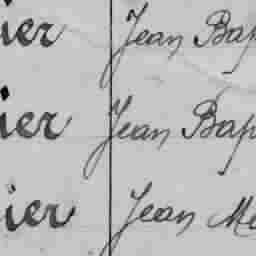 ier Jean Bap
ier Jean Bap
ier Jean Me